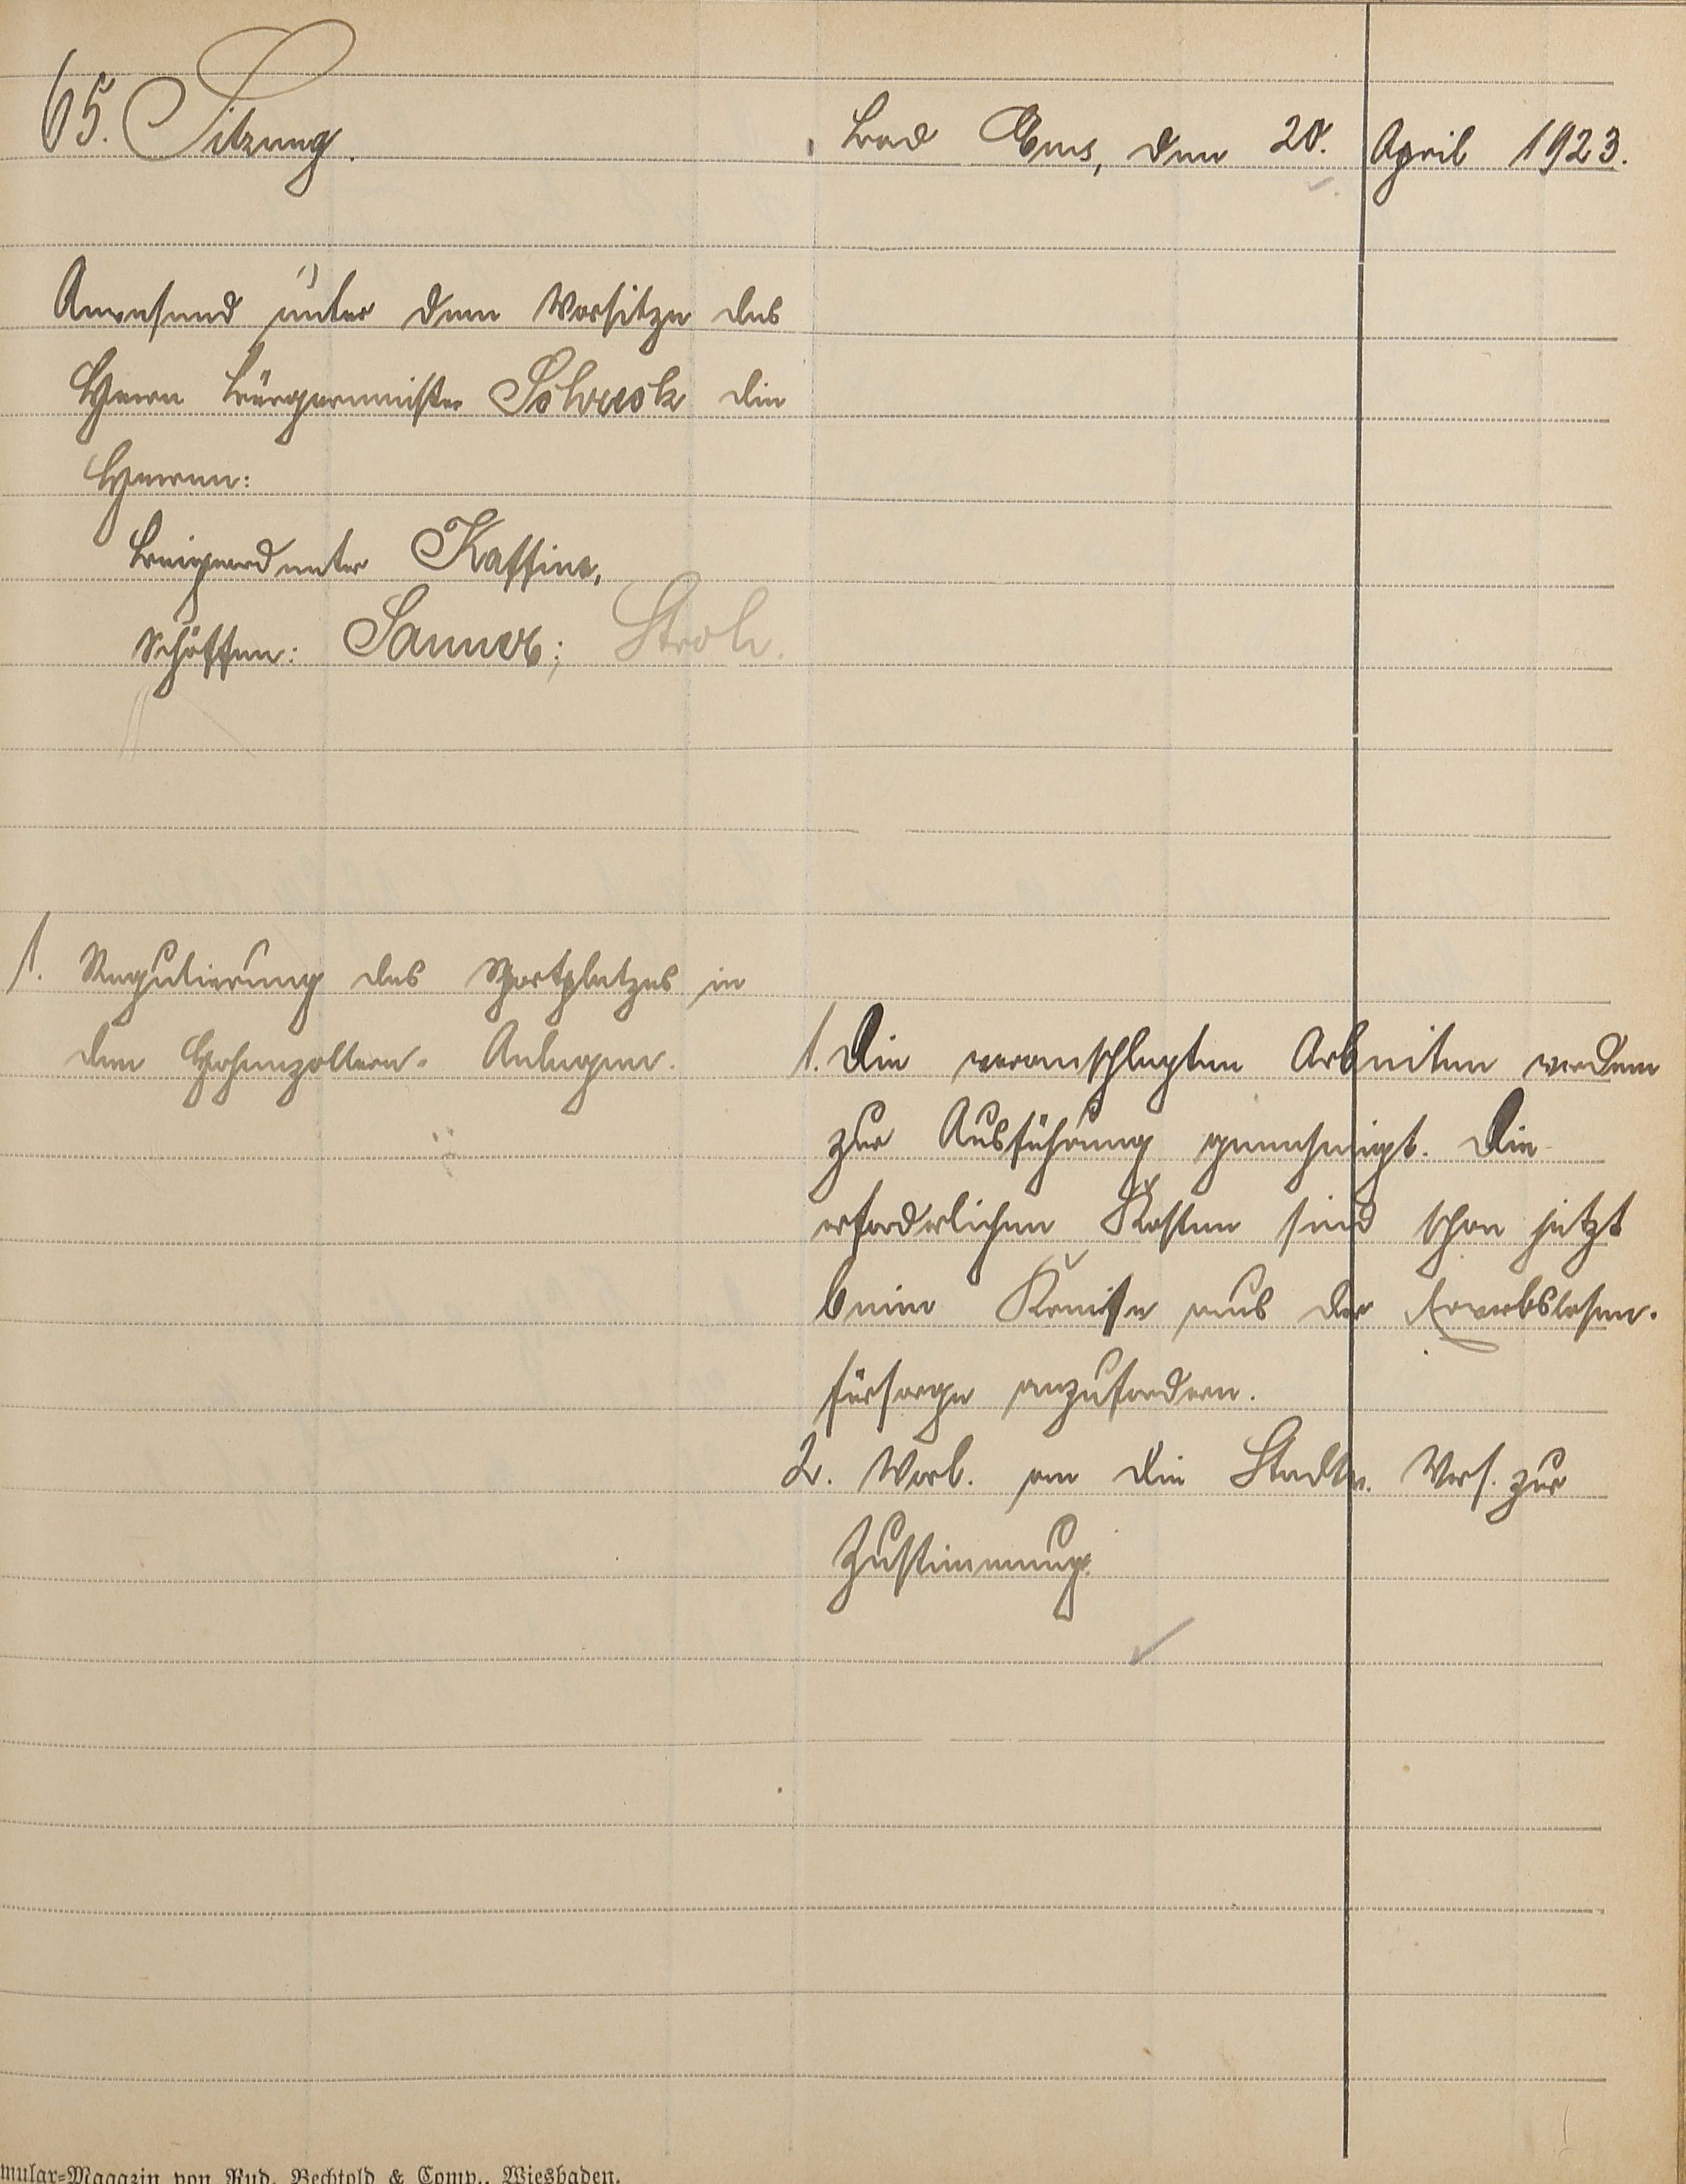 65. Sitzung.
Bad Ems, den 20. April 1923.
Anwesend unter dem Vorsitze des
Herrn Bürgermeister Schreck die
Herren:
Beigeordneter Kaffine,
Schöffen: Sanner; Stroh.
1. Regulierung des Sportplatzes in
den Hohenzollern-Anlagen.
1. Die veranschlagten Arbeiten werden
zur Ausführung genehmigt. Die
erforderlichen Kosten sind schon jetzt
beim Kreise aus der Erwerbslosen-
fürsorge anzufordern.
2. Vorl. an die Stadtv. Vers. zur
Zustimmung.
mular-Magazin von Rud. Bechtold & Comp., Wiesbaden.